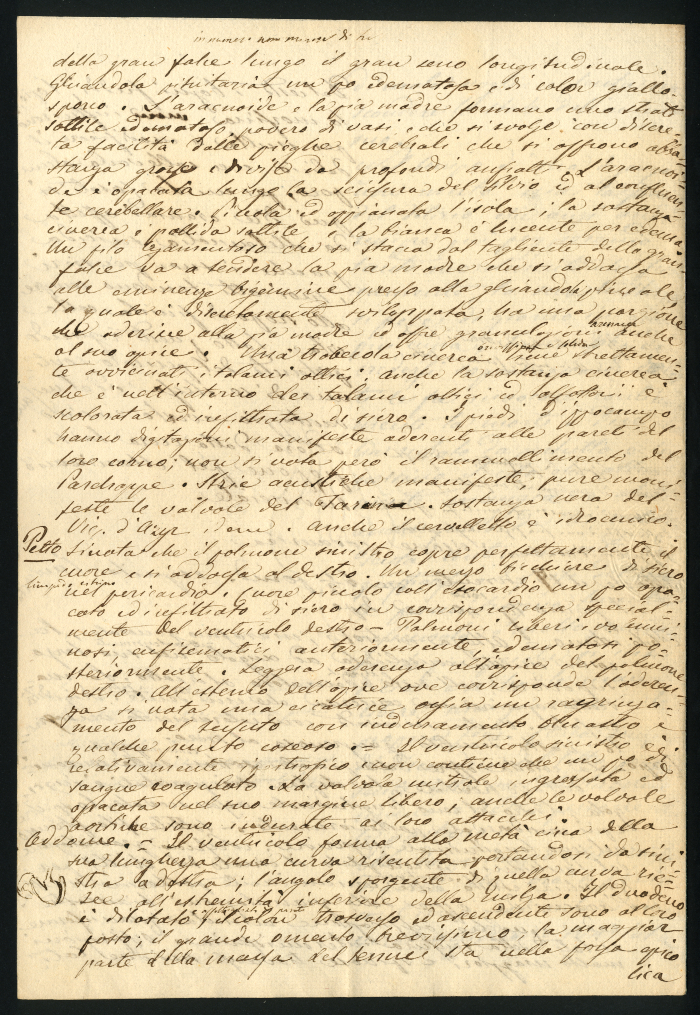 in numero non minore di
della gran falce lungo il gran seno longitudinale.
Ghiandola pituitaria un po edematosa e di color giallo-
sporco. L'aracnoide e la pia madre formano uno strato
sottile edematoso, povero di vasi, e che si svolge con discre-
ta facilità dalle pieghe cerebrali che si offrono abba
stanza grosse e divise da profondi anfratti. L'aracnoi-
de è opacata lungo la scissura del Silvio ed al confluen
te cerebellare. Piccola ed appianata l'isola; la sostanza
cinerea è pallida sottile, la bianca è lucente per edema.
Un filo legamentoso che si stacca dal tagliente della gran
falce va a tendere la pia madre che si addossa
alle eminenze bigemine presso alla ghiandola pineale
la quale è discretamente sviluppata, ha una porzione
che aderisce alla pia madre ed offre granulazioni anche
al suo apice. Una trabecola cinerea tiene strettamen-
te avvicinati i talami ottici; anche la sostanza cinerea
che è nell'interno dei talami ottici ed è
scolorata ed infiltrata di siero. I piedi d'ippocampo
hanno digitazioni manifeste aderenti alle pareti del
loro corno; non si nota però il rammollimento del
Parchappe. Strie acustiche manifeste, pure mani-
feste le valvole del Tarino. Sostanza nera del
Vicq. d'Azyr idem. Anche il cervelletto è idroemico.
Petto Si nota che il polmone sinistro copre perfettamente il
cuore e si addossa al destro. Un mezzo bicchiere di siero
nel pericardio. Cuore piccolo coll'esocardio un po opa-
cato ed infiltrato di siero in corrispondenza special-
mente del ventricolo destro - Polmoni liberi, volumi-
nosi enfisematici anteriormente, edematosi po-
steriormente. Leggera aderenza all'apice del polmone
destro. All'esterno dell'apice ove corrisponde l'aderen-
za si nota una cicatrice ossia un raggrinza-
mento del tessuto con induramento bluastro e
qualche punto caseoso. = Il ventricolo sinistro è
relativamente ipertrofico e non contiene che un po di
sangue coagulato. La valvola mitrale ingrossata ed
opacata nel suo margine libero; anche le valvole
aortiche sono indurate ai loro attacchi.
Addome. = Il ventricolo forma alla metà circa della
sua lunghezza una curva risentita portandosi da sini
stra a destra; l'angolo sporgente di quella curva rie-
sce all'estremità inferiore della milza. Il duodeno
è dilatato, il colon trasverso ed ascendente sono al loro
posto; il grande omento brevissimo; la maggior
parte della massa del tenue sta nella fossa epico
lica